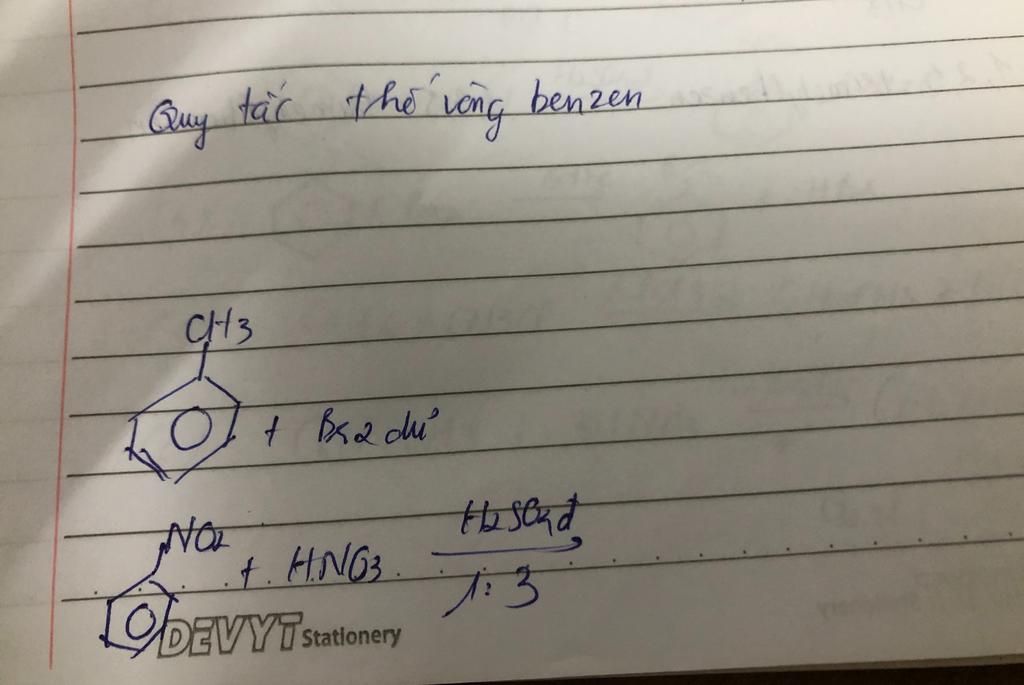 Quy tắc thế vòng benzen
CH3
+ Br2 dư
NO2
+ HNO3 H2SO4đ
1:3
DEVYT Stationery